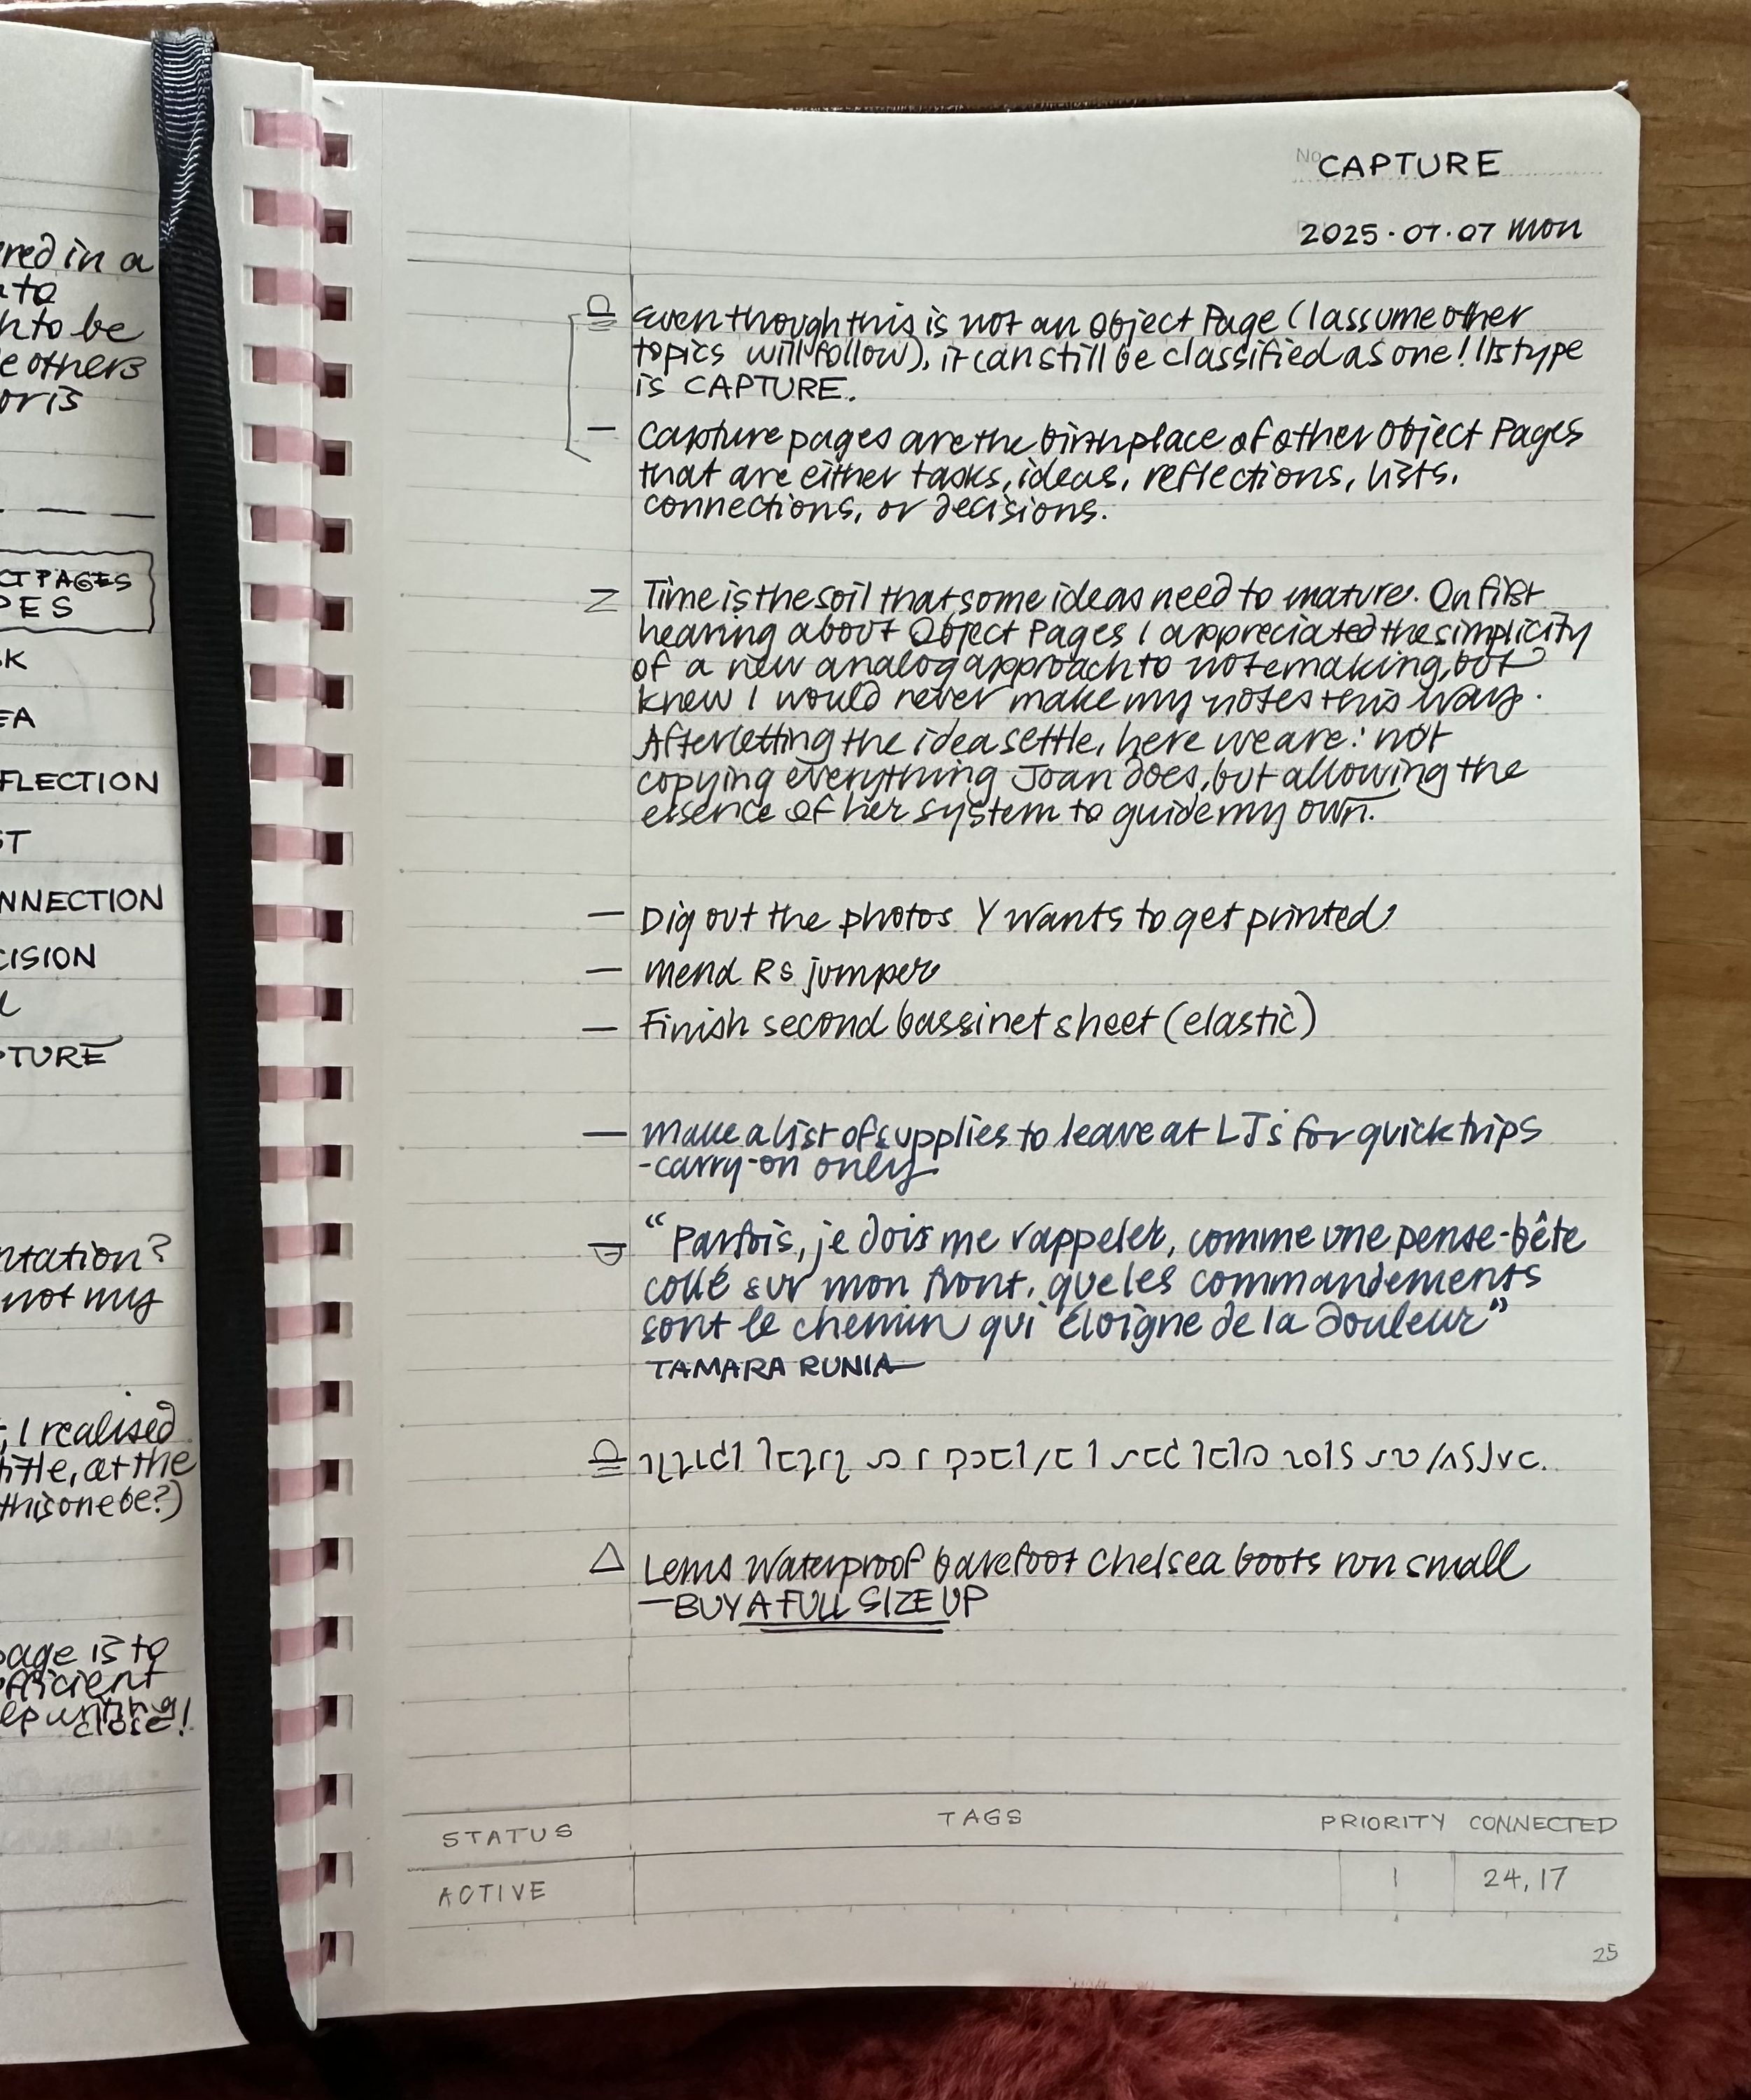 red in a
to
h to be
e others
or is
CT PAGES
PES
SK
EA
FLECTION
ST
NNECTION
CISION
L
PTURE
ntation?
not my
, I realised
title, at the
this one be?)
page is to
fficient
ep writing
close!
No.
CAPTURE
2025.07.07 mon
Even though this is not an Object Page (I assume other
topics will follow), it can still be classified as one! Its type
is CAPTURE.
— Capture pages are the birthplace of other Object Pages
that are either tasks, ideas, reflections, lists,
connections, or decisions.
Z Time is the soil that some ideas need to mature. On first
hearing about Object Pages I appreciated the simplicity
of a new analog approach to notemaking, but
knew I would never make my notes this way.
After letting the idea settle, here we are: not
copying everything Joan does, but allowing the
essence of her system to guide my own.
— Dig out the photos Y wants to get printed
— Mend Rs jumper
— Finish second bassinet sheet (elastic)
— Make a list of supplies to leave at LJs for quick trips
-carry-on only
"Parfois, je dois me rappeler, comme une pense-bête
collé sur mon front, que les commandements
sont le chemin qui éloigne de la douleur"
TAMARA RUNIA
△ Lems Waterproof barefoot Chelsea boots run small
—BUY A FULL SIZE UP
STATUS TAGS PRIORITY CONNECTED
ACTIVE 1 24, 17
25